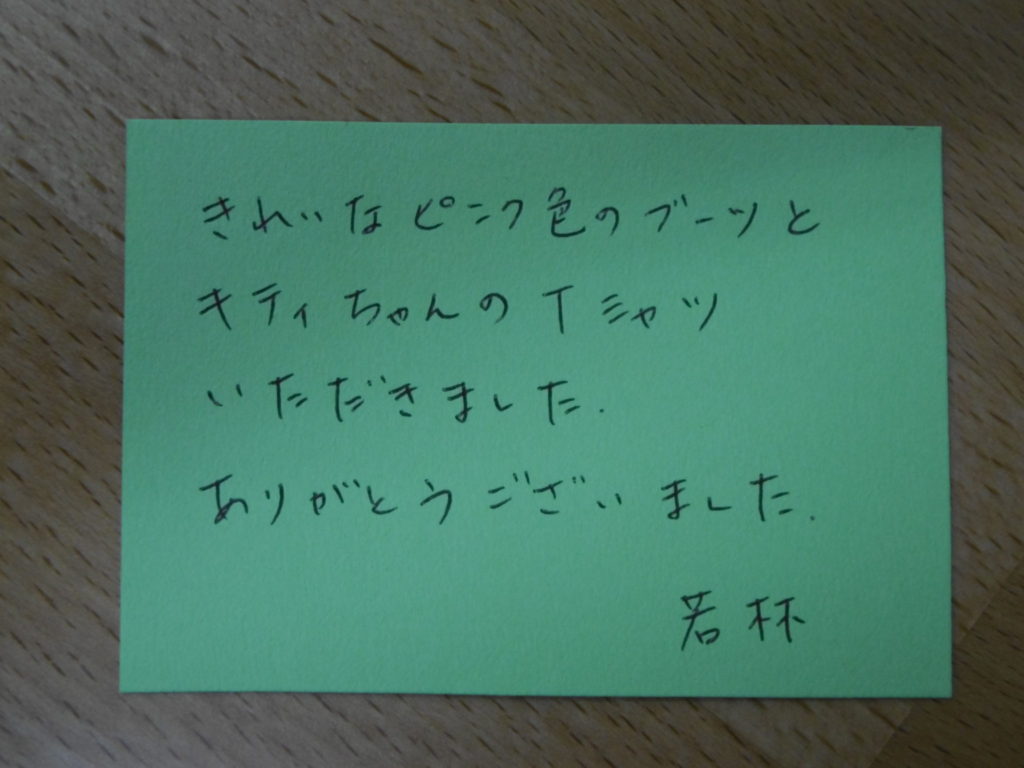 きれいなピンク色のブーツと
キティちゃんのTシャツ
いただきました.
ありがとうございました.
若林